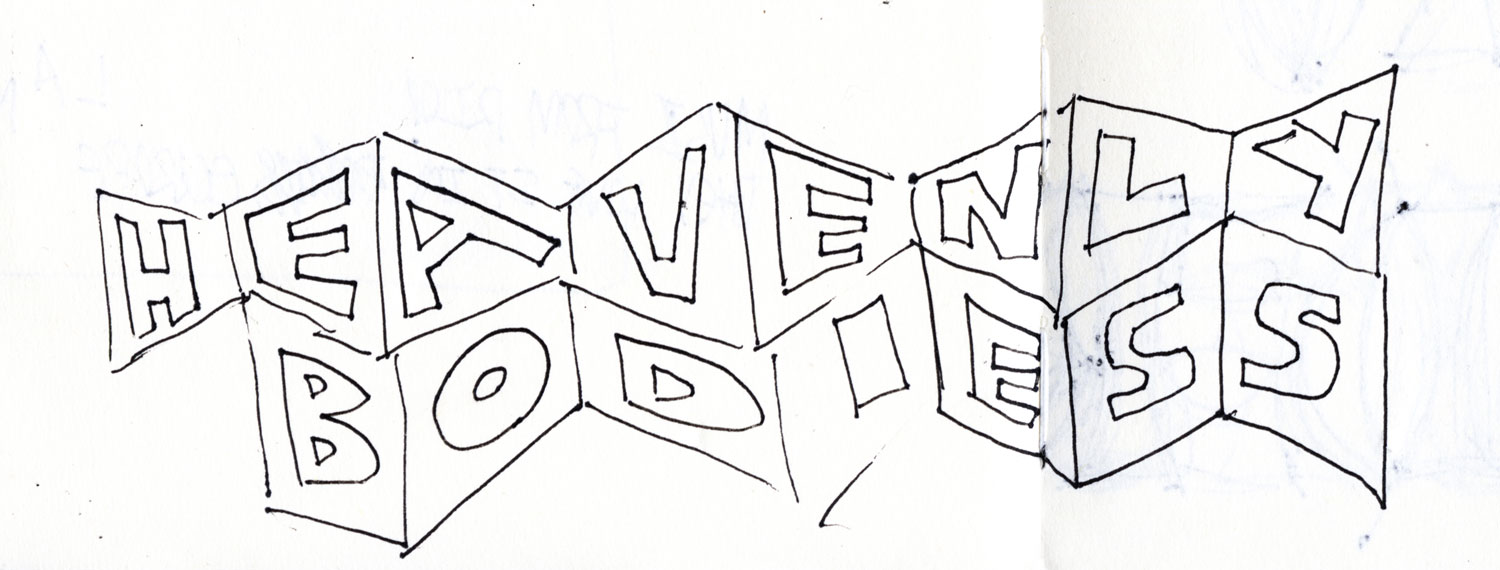 HEAVENLY
BODIESS